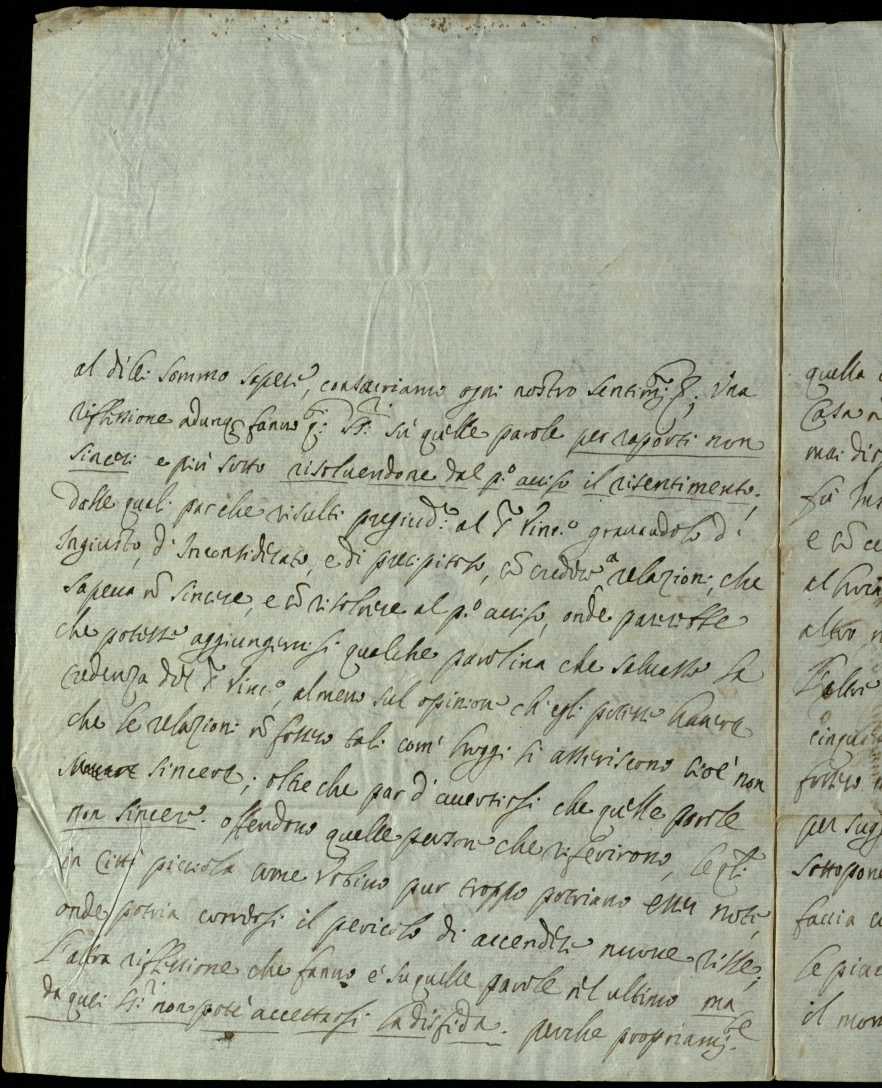 al di lei sommo sapere, consacriamo ogni nostro sentim.to; Una
riflessione adunq fanno q.ti SS.ri sù quelle parole per raporti non
sinceri e più sotto risoluendone dal p.o auiso il risentimento;
dalle quali par che risulti pregiud.o al S.r Vinc.o grauandolo d'
Ingiusto, d'Inconsiderato, e di precipitoso, cō credere a relazioni, che
sapeua nō sincere, e cō risoluere al p.o auiso, onde parrebbe
che potesse aggiungeruisi qualche parolina che saluasse la
credenza del S.r Vinc.o, almeno sul opinione ch'egli potesse hauere
che le relazioni nō fossero tali com' hoggi si asseriscono cioè non
sincere; oltre che par d'auertirsi che quelle parole
non sincere. offendono quelle persone che riferirono, le q.li
in Città picciola come Vrbino pur troppo potriano esser note,
onde potria correrssi il pericolo di accendere nuoue risse;
L'altra riflessione che fanno è su quelle parole nel ultimo ma
da quei SS.ri non potè accettarsi la disfida. perche propriam.te
quella
Casa n
mai dis
fù
e cō ce
al
altro n
L'altre
fossero
per sugg
sottopone
faccia
le piac
il mon